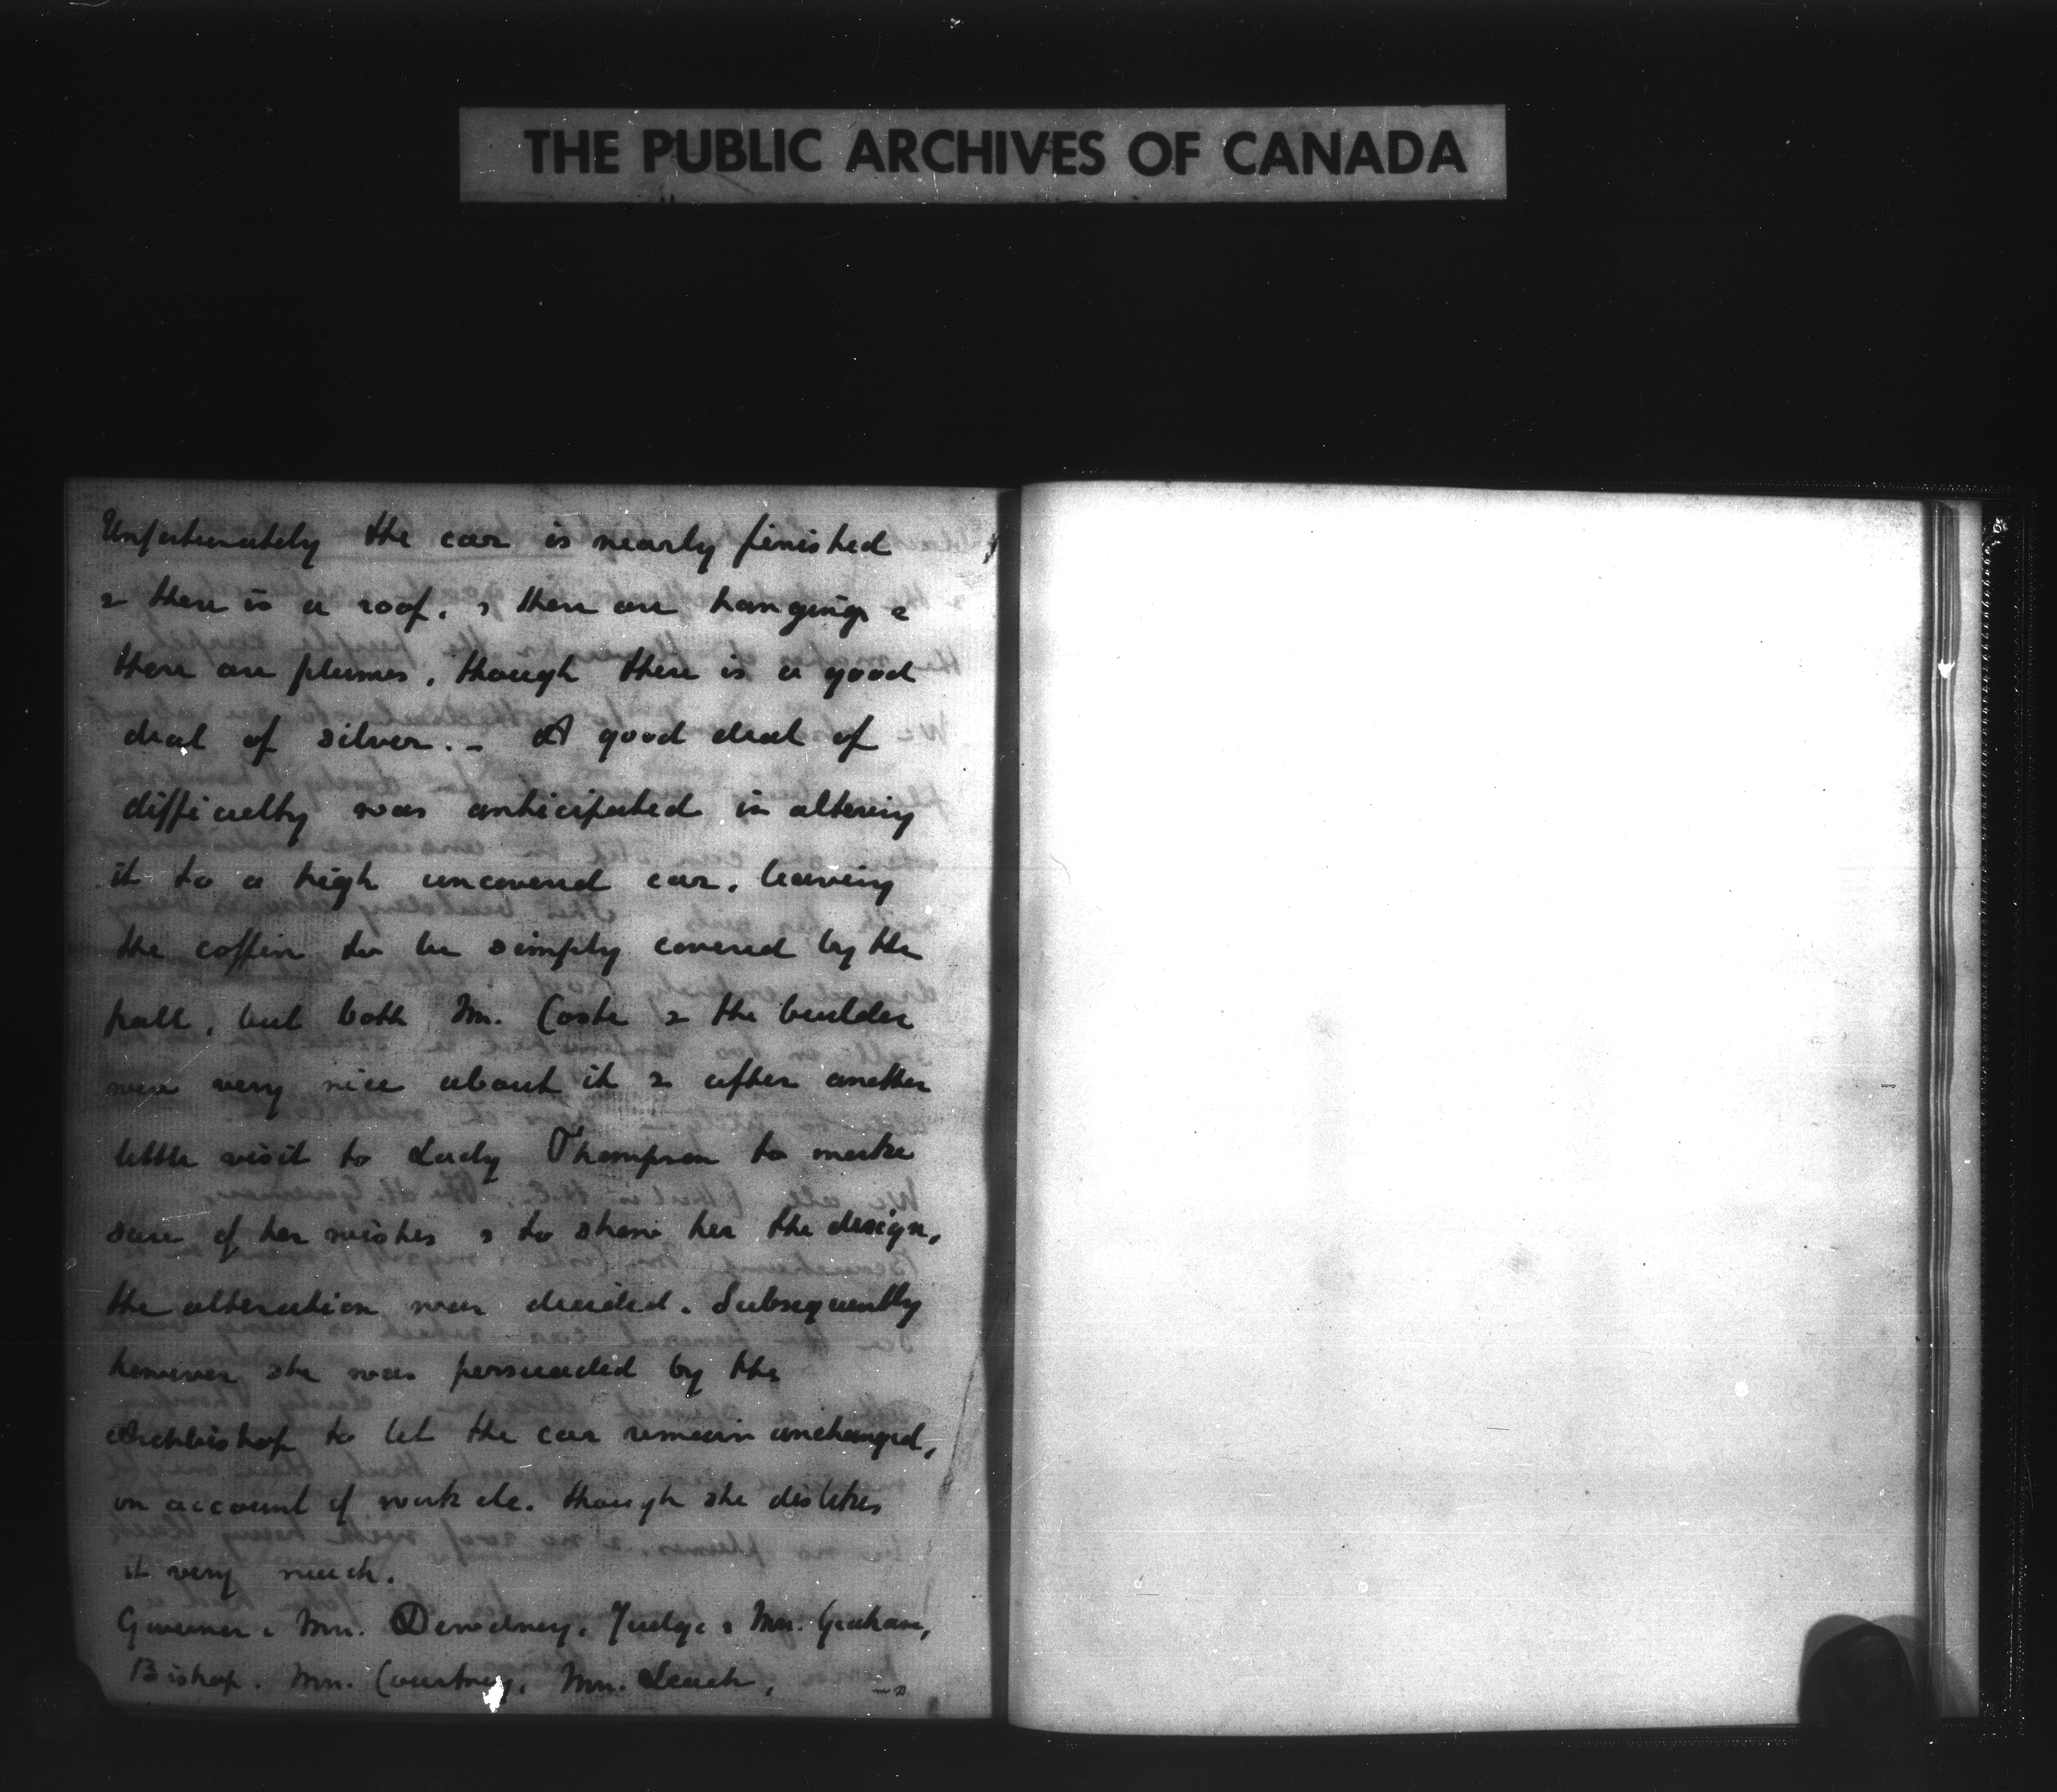 THE PUBLIC ARCHIVES OF CANADA
Unfortunately the car is nearly finished
& there is a roof, & there are hangings &
there are plumes, though there is a good
deal of silver. - A good deal of
difficulty was anticipated in altering
it to a high uncovered car, leaving
the coffin to be simply covered by the
pall, but both Mr. Coste & the builder
were very nice about it & after another
little visit to Lady Thompson to make
sure of her wishes & to show her the design,
the alteration was decided. Subsequently
however she was persuaded by the
Archbishop to let the car remain unchanged,
on account of work etc. though she dislikes
it very much.
Governor & Mrs. Dewdney, Judge & Mrs. Graham,
Bishop. Mrs. Courtney, Mrs. Leach,